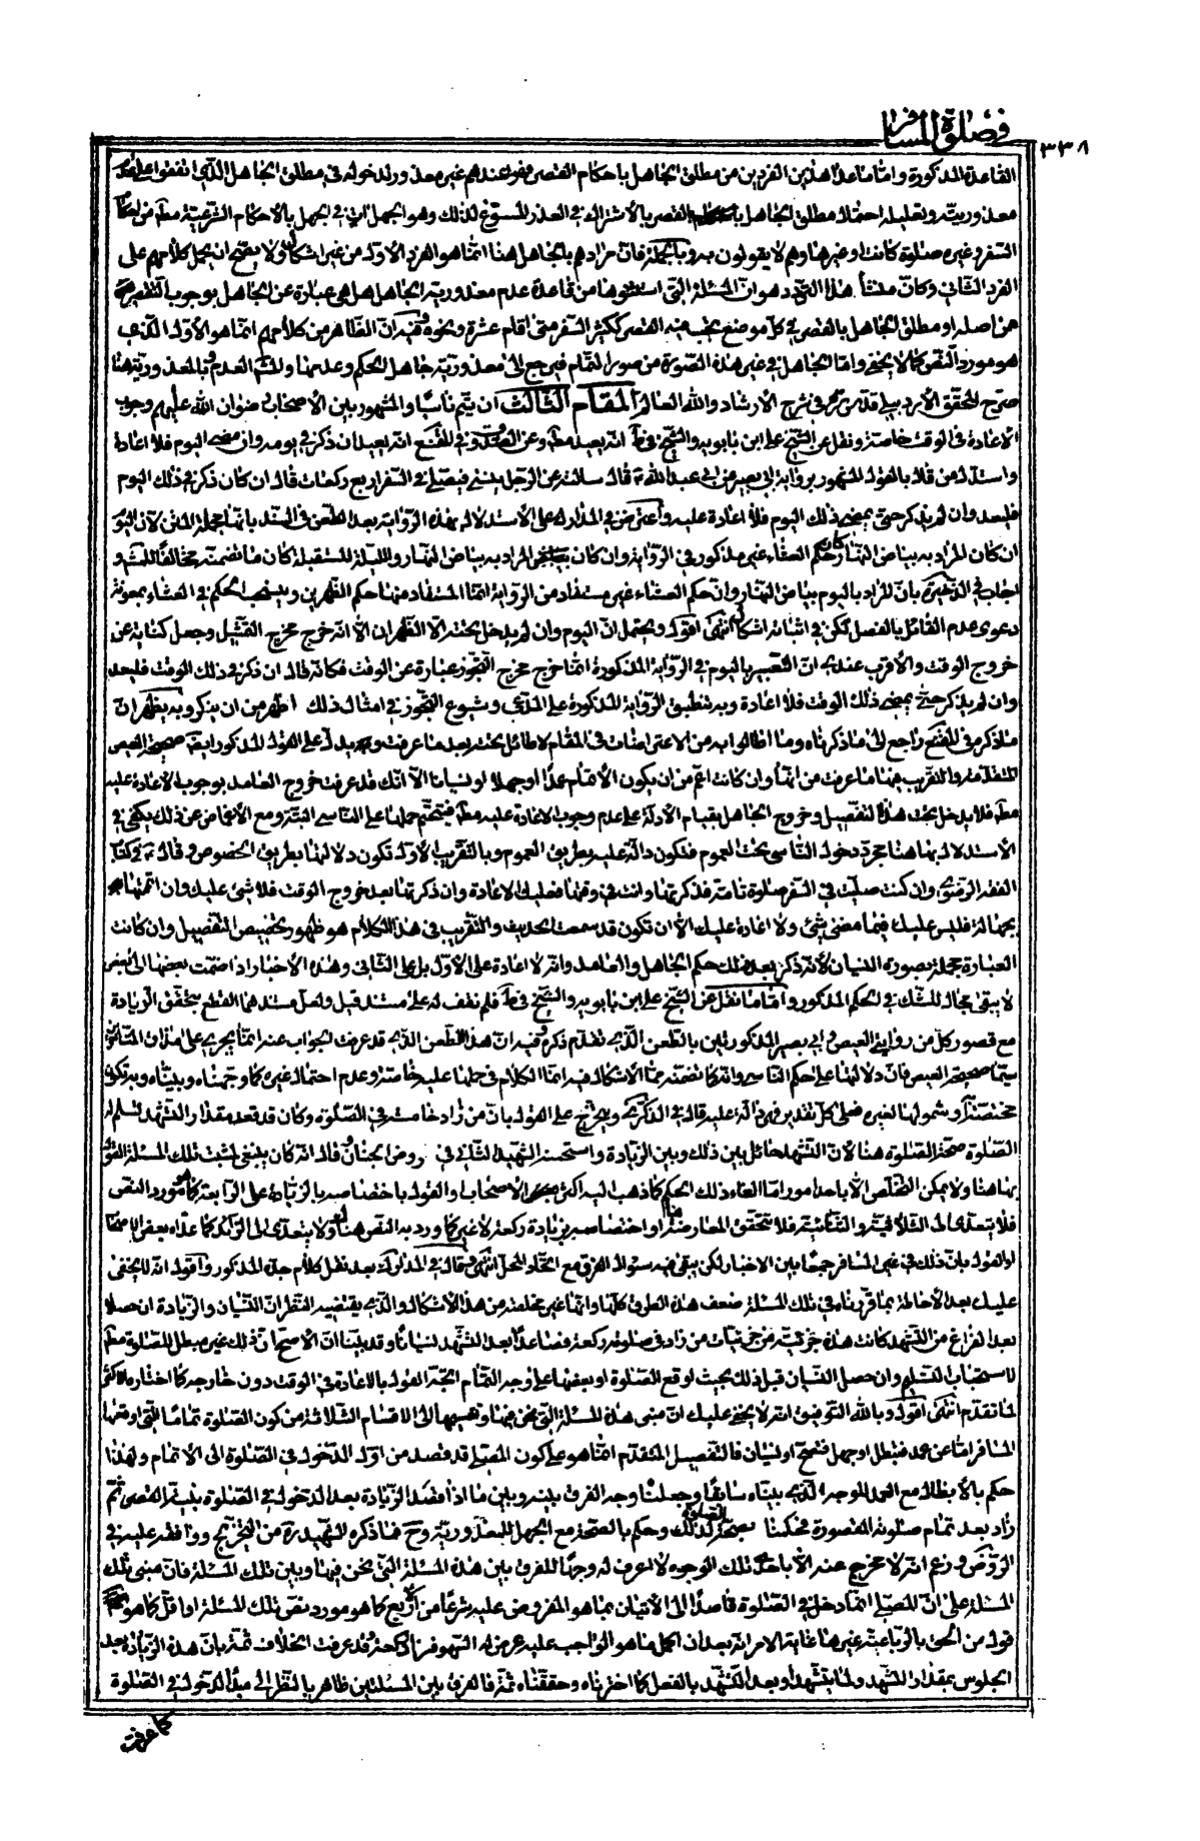 في صلوة المسافر
٣٣٨
القاعدة المذكورة واما ما عدا هذين الفردين من مطلق الجاهل باحكام القصر فهو عندهم غير معذور لدخوله في مطلق الجاهل الذي اتفقوا على عدم
معذوريته وتعليله احتمالا مطلق الجاهل القصر بالاشتراك في العذر المسوغ لذلك وهو الجهل ات في الجهل بالاحكام الشرعية مطلقا من احكام
السفر وغيره صلوة كانت او غيرها وهم لا يقولون به وبالجملة فان مرادهم بالجاهل هنا انما هو الفرد الاول من غير اشكال ولا يصح ان يحمل كلامهم على
الفرد الثاني وكان منشأ هذا التردد هو ان المسئلة التي استثنوها من قاعدة عدم معذورية الجاهل هل هي عبارة عن الجاهل بوجوب التقصير
من اصله او مطلق الجاهل بالقصر في كل موضع يجب فيه القصر ككثير السفر متى اقام عشرة ونحوه وفيه ان الظاهر من كلامهم انما هو الاول الذي
هو مورد النص كما لا يخفى واما الجاهل في غير هذه الصورة من صور التمام فيرجع الى معذورية جاهل الحكم وعدمها وبالمعذورية هنا
صرح المحقق الاردبيلي قدس سره في شرح الارشاد والله العالم المقام الثالث ان يتم ناسيا والمشهور بين الاصحاب رضوان الله عليهم وجوب
الاعادة في الوقت خاصة ونقل عن الشيخ علي ابن بابويه والشيخ في ط انه يعيد مطلقا وعن الصدوق في المقنع انه يعيد ان ذكر في يومه وان مضى اليوم فلا اعادة
واستدل من قال بالقول المشهور برواية ابي بصير عن ابي عبد الله ع قال سالته عن الرجل ينسى فيصلي في السفر اربع ركعات قال ان كان ذكر في ذلك اليوم
فليعد وان لم يذكر حتى يمضي ذلك اليوم فلا اعادة عليه واعترض في المدارك على الاستدلال بهذه الرواية بعد الطعن في السند بانها مجملة المتن لان اليوم
ان كان المراد به بياض النهار كان حكم العشاء غير مذكور في الرواية وان كان المراد به بياض النهار والليلة المستقبلة كان ما تضمنته مخالفا للمشهور و
اجاب في الذخيرة بان المراد باليوم بياض النهار وان حكم العشاء غير مستفاد من الرواية انما المستفاد منها حكم الظهرين ويضاف الحكم في العشاء بمعونة
دعوى عدم القائل بالفصل لكن في اثباته اشكال انتهى اقول ويحتمل ان اليوم وان لم يدخل تحته الا الظهران الا انه خرج مخرج التمثيل وجعل كناية عن
خروج الوقت والاقرب عندي ان التعبير باليوم في الرواية المذكورة انما خرج مخرج التجوز عبارة عن الوقت فكانه قال ان ذكر في ذلك الوقت فليعد
وان لم يذكر حتى يمضي ذلك الوقت فلا اعادة وبه تنطبق الرواية المذكورة على المدعى وشيوع التجوز في امثال ذلك اظهر من ان ينكر وبه يظهر ان
ما ذكر في المقنع راجع الى ما ذكرناه وما اطالوا به من الاعتراضات في المقام لا طائل تحته بعد ما عرفت ويدل على القول المذكور ايضا صحيحة العيص
المتقدمة والتقريب فيها ما عرفت من انها وان كانت اعم من ان يكون الاتمام عمدا او جهلا او نسيانا الا انك قد عرفت خروج العامد بوجوب الاعادة عليه
مطلقا فلا يدخل تحت هذا التفصيل وخروج الجاهل بقيام الادلة على عدم وجوب الاعادة عليه مطلقا فيتحتم حملها على الناسي البتة ومع الاغماض عن ذلك يكفي في
الاستدلال بها هنا مجرد دخول الناسي تحت العموم فتكون دالة عليه بطريق العموم وبالتقريب الاول تكون دلالتها بطريق الخصوص وقال ع في كتاب
الفقه الرضوي وان كنت صليت في السفر صلوة تامة فذكرتها وانت في وقتها فعليك الاعادة وان ذكرتها بعد خروج الوقت فلا شئ عليك وان اتممتها
بجهالة فليس عليك فيما مضى شئ ولا اعادة عليك الا ان تكون قد سمعت الحديث والتقريب في هذا الكلام هو ظهور تخصيص التفصيل وان كانت
العبارة مجملة بصورة النسيان لانه ذكر بعد ذلك حكم الجاهل والعامد وانه لا اعادة على الاول بل على الثاني وهذه الاخبار اذا ضمت بعضها الى بعض
لا يبقى مجال للشك في الحكم المذكور واما ما نقل عن الشيخ علي ابن بابويه والشيخ في ط فلم نقف له على مستند قيل ولعل مستندهما القطع بتحقق الزيادة
مع قصور كل من روايتي العيص وابي بصير المذكورتين بالطعن الذي تقدم ذكره وفيه ان هذا الطعن الذي قد عرفت الجواب عنه انما يجري على مذاق المتاخرين
سيما صحيحة العيص فان دلالتها على حكم الناسي وانه كما تضمنته مما لا اشكال فيه انما الكلام في حملها عليه خاصة وعدم احتمال غيره كما وجهناه وبيناه وبه تكون
مختصة او شمولها لغيره فعلى كل تقدير فهي دالة عليه قال في الذكرى ويتخرج على القول بان من زاد خامسة في الصلوة وكان قد قعد مقدار التشهد تسلم له
الصلوة صحة الصلوة هنا لان التشهد حائل بين ذلك وبين الزيادة واستحسنه الشهيد الثاني في روض الجنان وقال انه كان ينبغي لمثبت تلك المسئلة القول
بها هنا ولا يمكن التخلص الا باحد امور اما الغاء ذلك الحكم كما ذهب اليه اكثر الاصحاب والقول باختصاصه بالزيادة على الرابعة كما هو مورد النص
فلا يتعدى الى الثلاثية والثنائية فلا تتحقق المعارضة هنا او اختصاصه بزيادة ركعة لا غير كما ورد به النص هناك ولا يتعدى الى الزائد كما عداه بعض الاصحاب
او القول بان ذلك في غير المسافر جمعا بين الاخبار لكن يبقى فيه سؤال الفرق مع اتحاد المحل انتهى وقال في المدارك بعد نقل كلام جده المذكور واقول انه لا يخفى
عليك بعد الاحاطة بما قررناه في تلك المسئلة ضعف هذه الطرق كلها وانها غير مخلصة من هذا الاشكال والذي يقتضيه النظر ان النسيان والزيادة ان حصلا
بعد الفراغ من التشهد كانت هذه جزئية من جزئيات من زاد في صلوته ركعة فصاعدا بعد التشهد نسيانا وقد بينا ان الاصح ان ذلك غير مبطل للصلوة مطلقا
لاستحباب التسليم وان حصل النسيان قبل ذلك بحيث اوقع الصلوة او بعضها على وجه التمام اتجه القول بالاعادة في الوقت دون خارجه كما اختاره الاكثر
لما تقدم انتهى اقول وبالله التوفيق انه لا يخفى عليك ان مبنى هذه المسئلة التي نحن فيها وتقسيمها الى الاقسام الثلاثة من كون الصلوة تماما التي اوقعها
المسافر اما عن عمد فتبطل او جهل فتصح او نسيان فالتفصيل المتقدم انما هو على كون المصلي قد قصد من اول الدخول في الصلوة الى الاتمام ولهذا
حكم بالابطال مع العمد للوجه الذي بيناه سابقا وجعلنا وجه الفرق بينه وبين ما اذا قصد الزيادة بعد الدخول في الصلوة بنية القصر ثم
زاد بعد تمام صلوته المقصورة فحكمنا بصحة الصلوة لذلك وحكم بالصحة مع الجهل للمعذورية وح فما ذكره الشهيد ره من التخريج ووافقه عليه في
الروض وزعم انه لا مخرج عنه الا باحد تلك الوجوه لا اعرف له وجها للفرق بين هذه المسئلة التي نحن فيها وبين تلك المسئلة فان مبنى تلك
المسئلة على ان المصلي انما دخل في الصلوة قاصدا الى الاتيان بما هو المفروض عليه شرعا من الاربع كما هو مورد نص تلك المسئلة او اقل كما هو
قول من الحق بالرباعية غيرها غاية الامر انه بعد ان اكمل ما هو الواجب عليه عرض له السهو فزاد ركعة وقد عرفت الخلاف ثمة بان هذه الزيادة بعد
الجلوس بمقدار التشهد ولما يتشهد او بعد التشهد بالفعل كما اخترناه وحققناه ثمة فالفرق بين المسئلتين ظاهر بالنظر الى مبدأ الدخول في الصلوة
كما عرفت